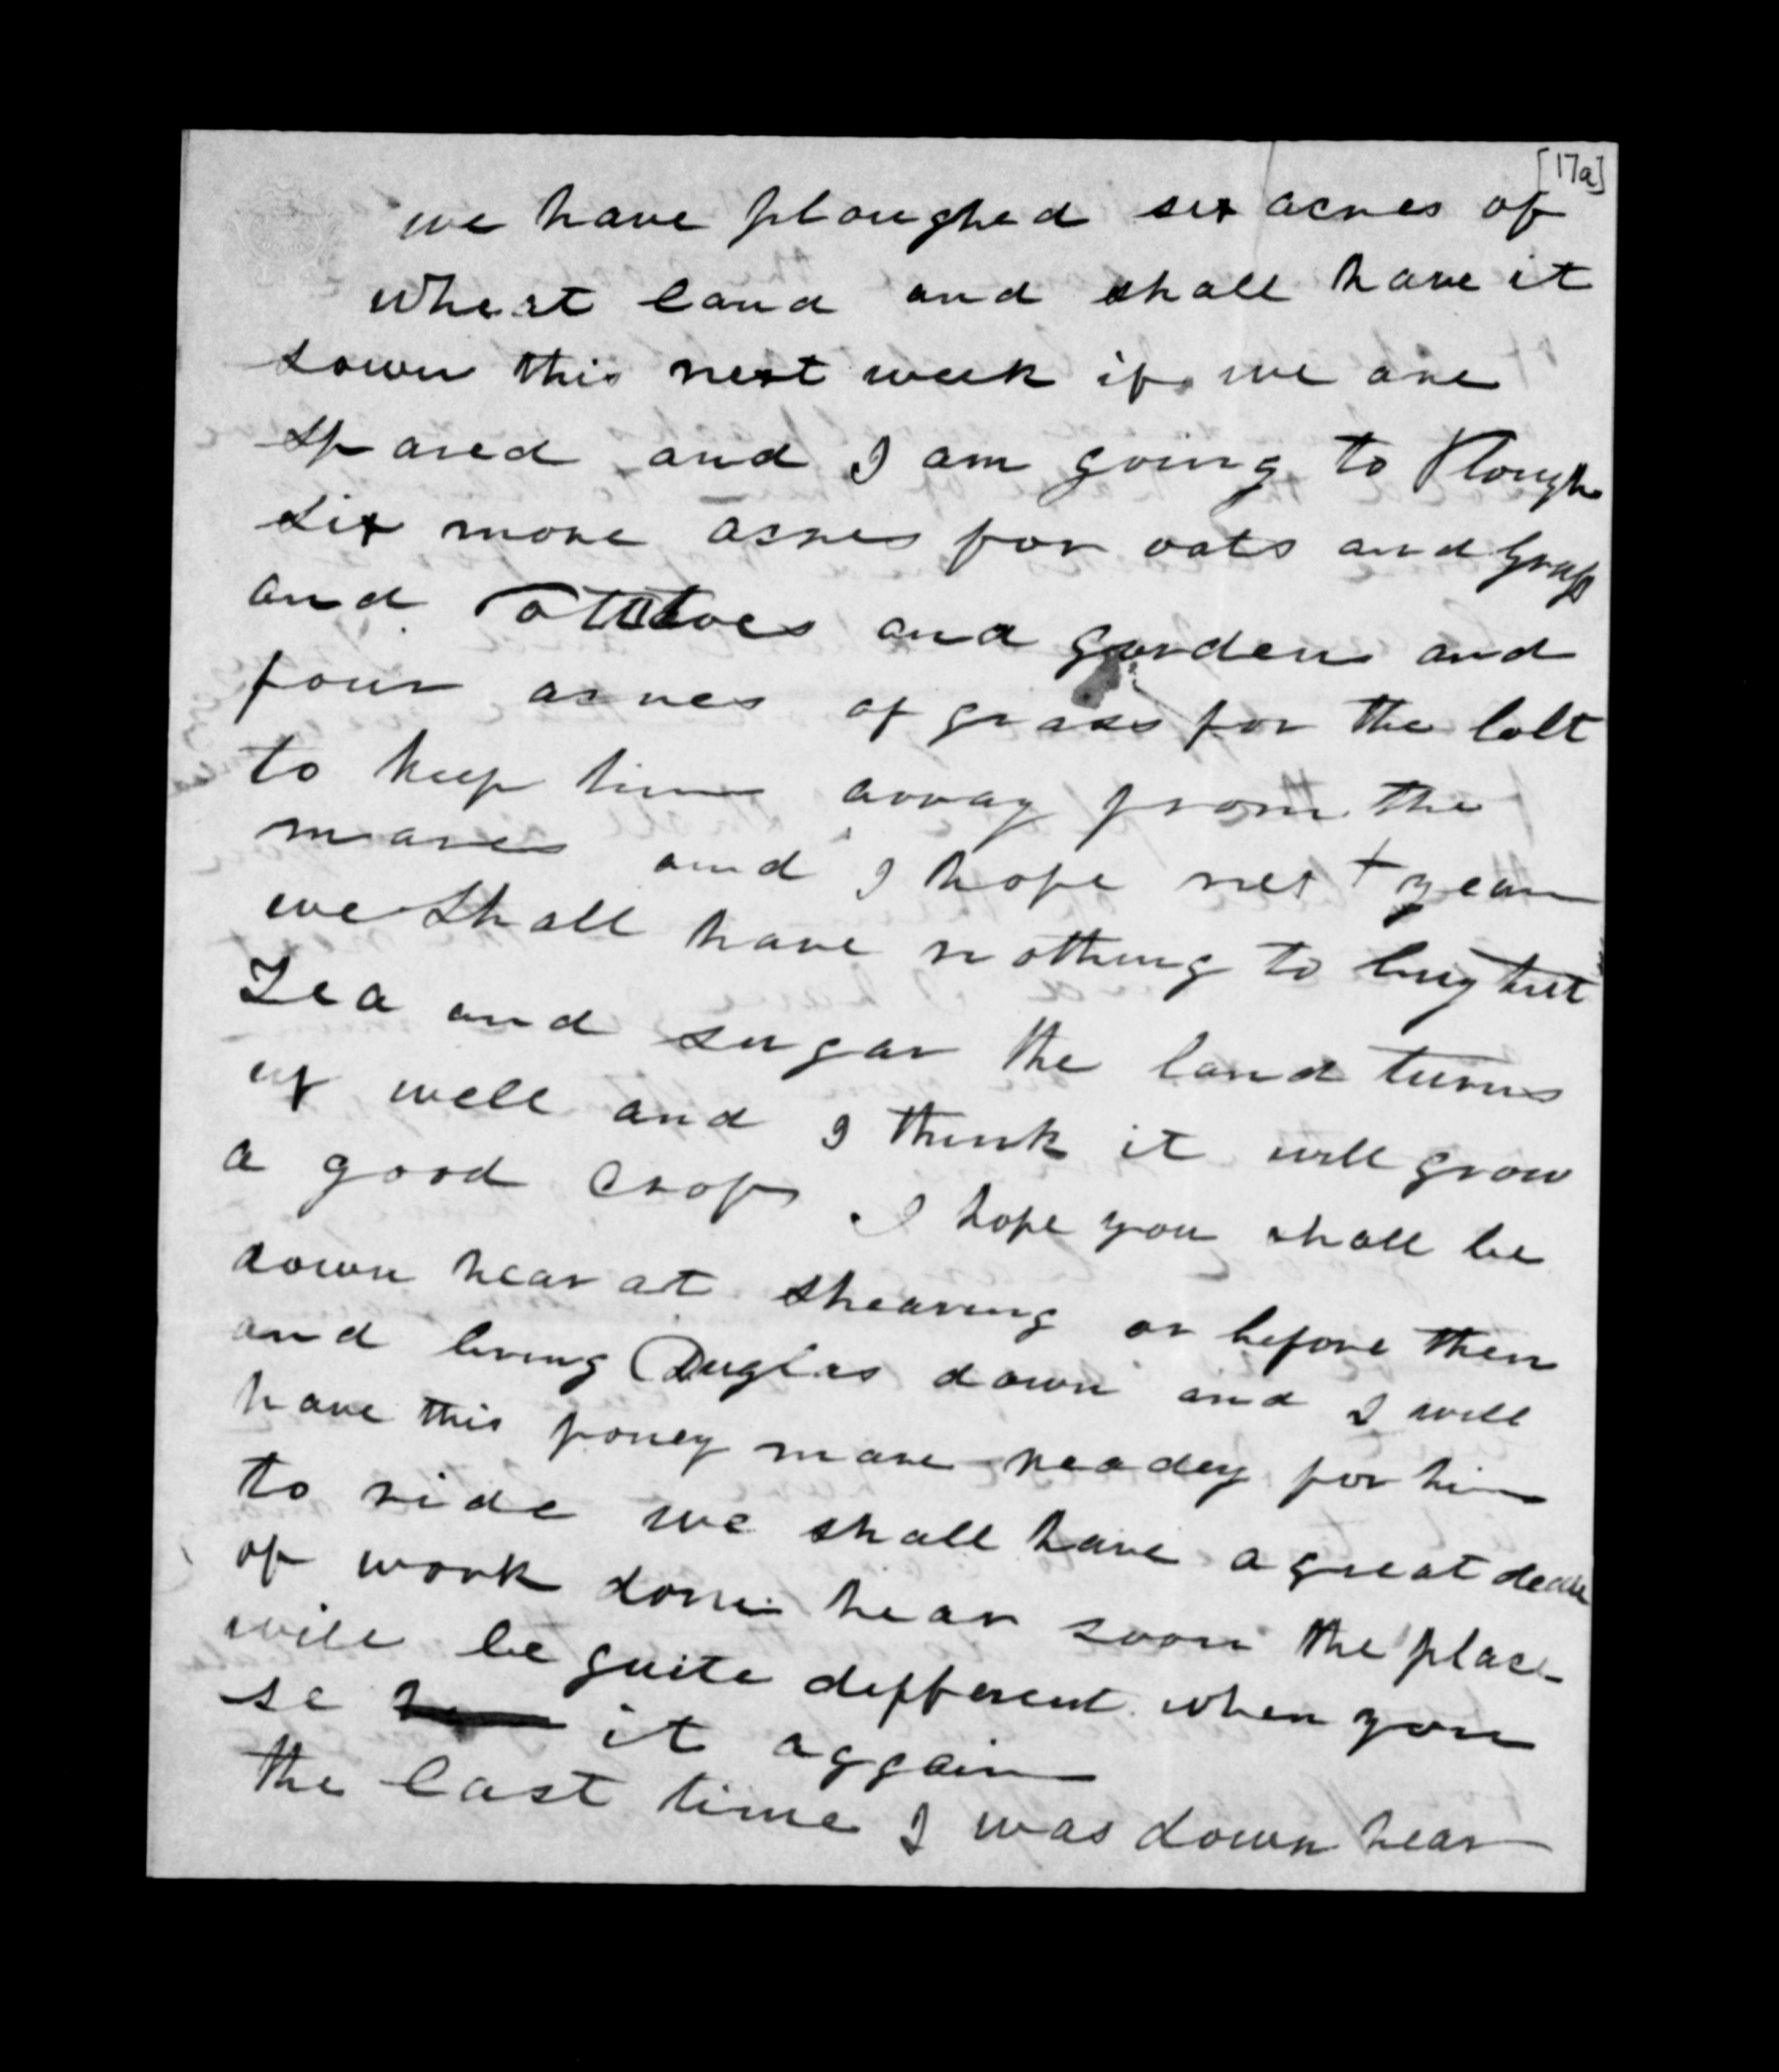 [17a]
we have ploughed six acres of
wheat land and shall have it
sown this next week if we are
spared and I am going to Plough
six more acres for oats and Grass
and Potatoes and garden and
four acres of grass for the Colt
to keep him away from the
mares and I hope next year
we shall have nothing to buy but
Tea and sugar the land turns
up well and I think it will grow
a good crop I hope you shall be
down hear at shearing or before then
and bring Duglas down and I will
have this poney mare readey for him
to ride we shall have a great deale
of work done hear soon the place
will be quite defferent when you
se it aggain
the last time I was down hear